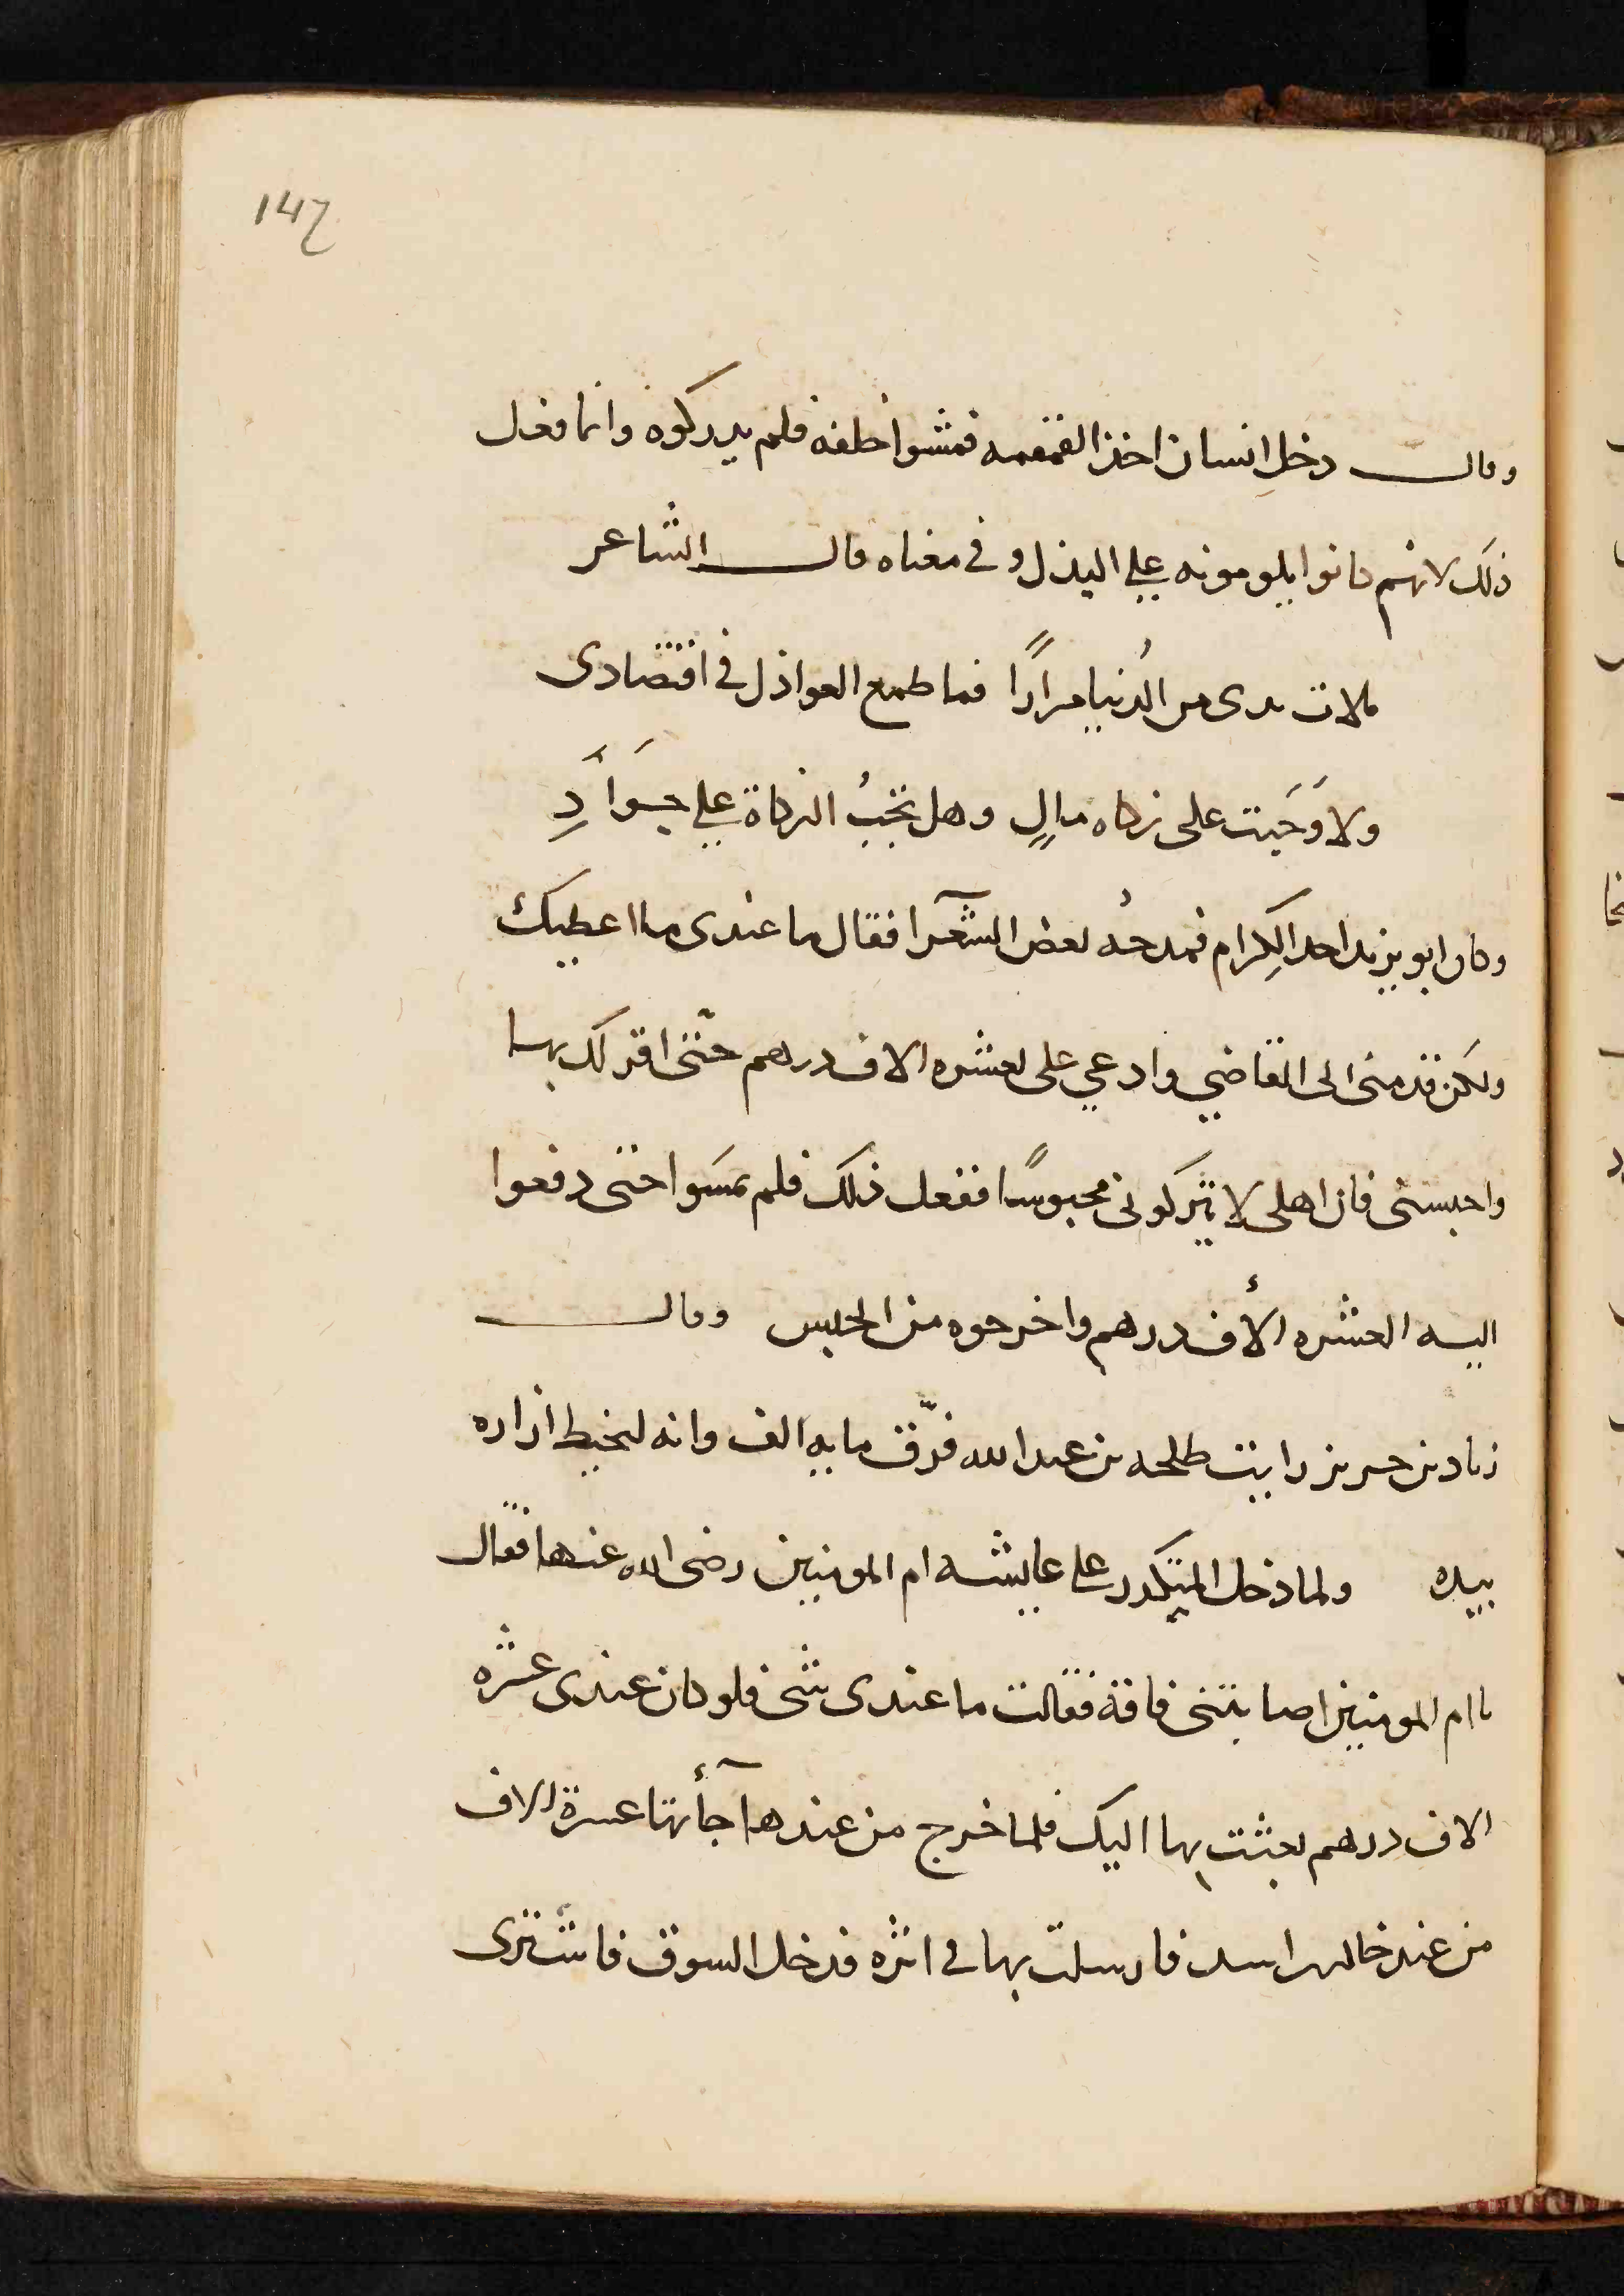 147
وقال دخل انسان اخذ القمقمه فمشوا خلفه فلم يدركوه وانما فعل
ذلك لانهم كانوا يلومونه علي البذل وفي معناه قال الشاعر
ملات يدى من الدُنيا مرارًا فما طمع العواذل في اقتصادى
ولا وَجَبت على زكاه مالٍ وهل تجبُ الزكاة علي جَوَادِ
وكان ابو يزيد احد الكِرام فمدحُه بعض الشعرآ فقال ما عندى ما اعطيك
ولكن قدمنى الى القاضي وادعي على بعشره الاف درهم حتّى اقر لك بها
واحبسنى فان اهلى لا يتركونى محبوسًا ففعل ذلك فلم يمسَوا حتى دفعوا
اليه العشره الأف درهم واخرجوه من الحبس وقال
زياد بن حرير رايت طلحه بن عبد الله فرّق مايه الف وانه ليخيط ازاره
بيده ولما دخل المنكدر على عايشه ام المومنين رضى الله عنها فقال
يا ام المومنين اصابتنى فاقة فقالت ما عندى شى فلو كان عندى عشره
الاف درهم بعثت بها اليك فلما خرج من عندها جآأتها عسرة الاف
من عند خالد بن اسد فارسلت بها في اثره فدخل السوق فاشترى